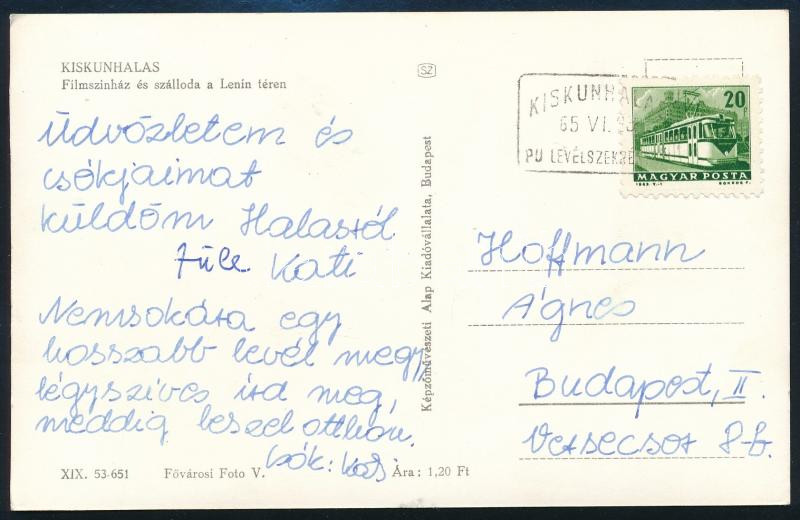 KISKUNHALAS
Filmszinház és szálloda a Lenin téren
Üdvözletem és
csókjaimat
küldöm Halasról
Kati
Nemsokára egy
hosszabb levél megy,
légyszíves írd meg,
meddig leszel otthon.
Csók: Kati
XIX. 53-651 Fővárosi Foto V. Ára: 1,20 Ft
SZ
Képzőművészeti Alap Kiadóvállalata, Budapest
KISKUNHALA
65 VI.
PU LEVÉLSZEKRÉ
20
MAGYAR POSTA
Hoffmann
Ágnes
Budapest, II.